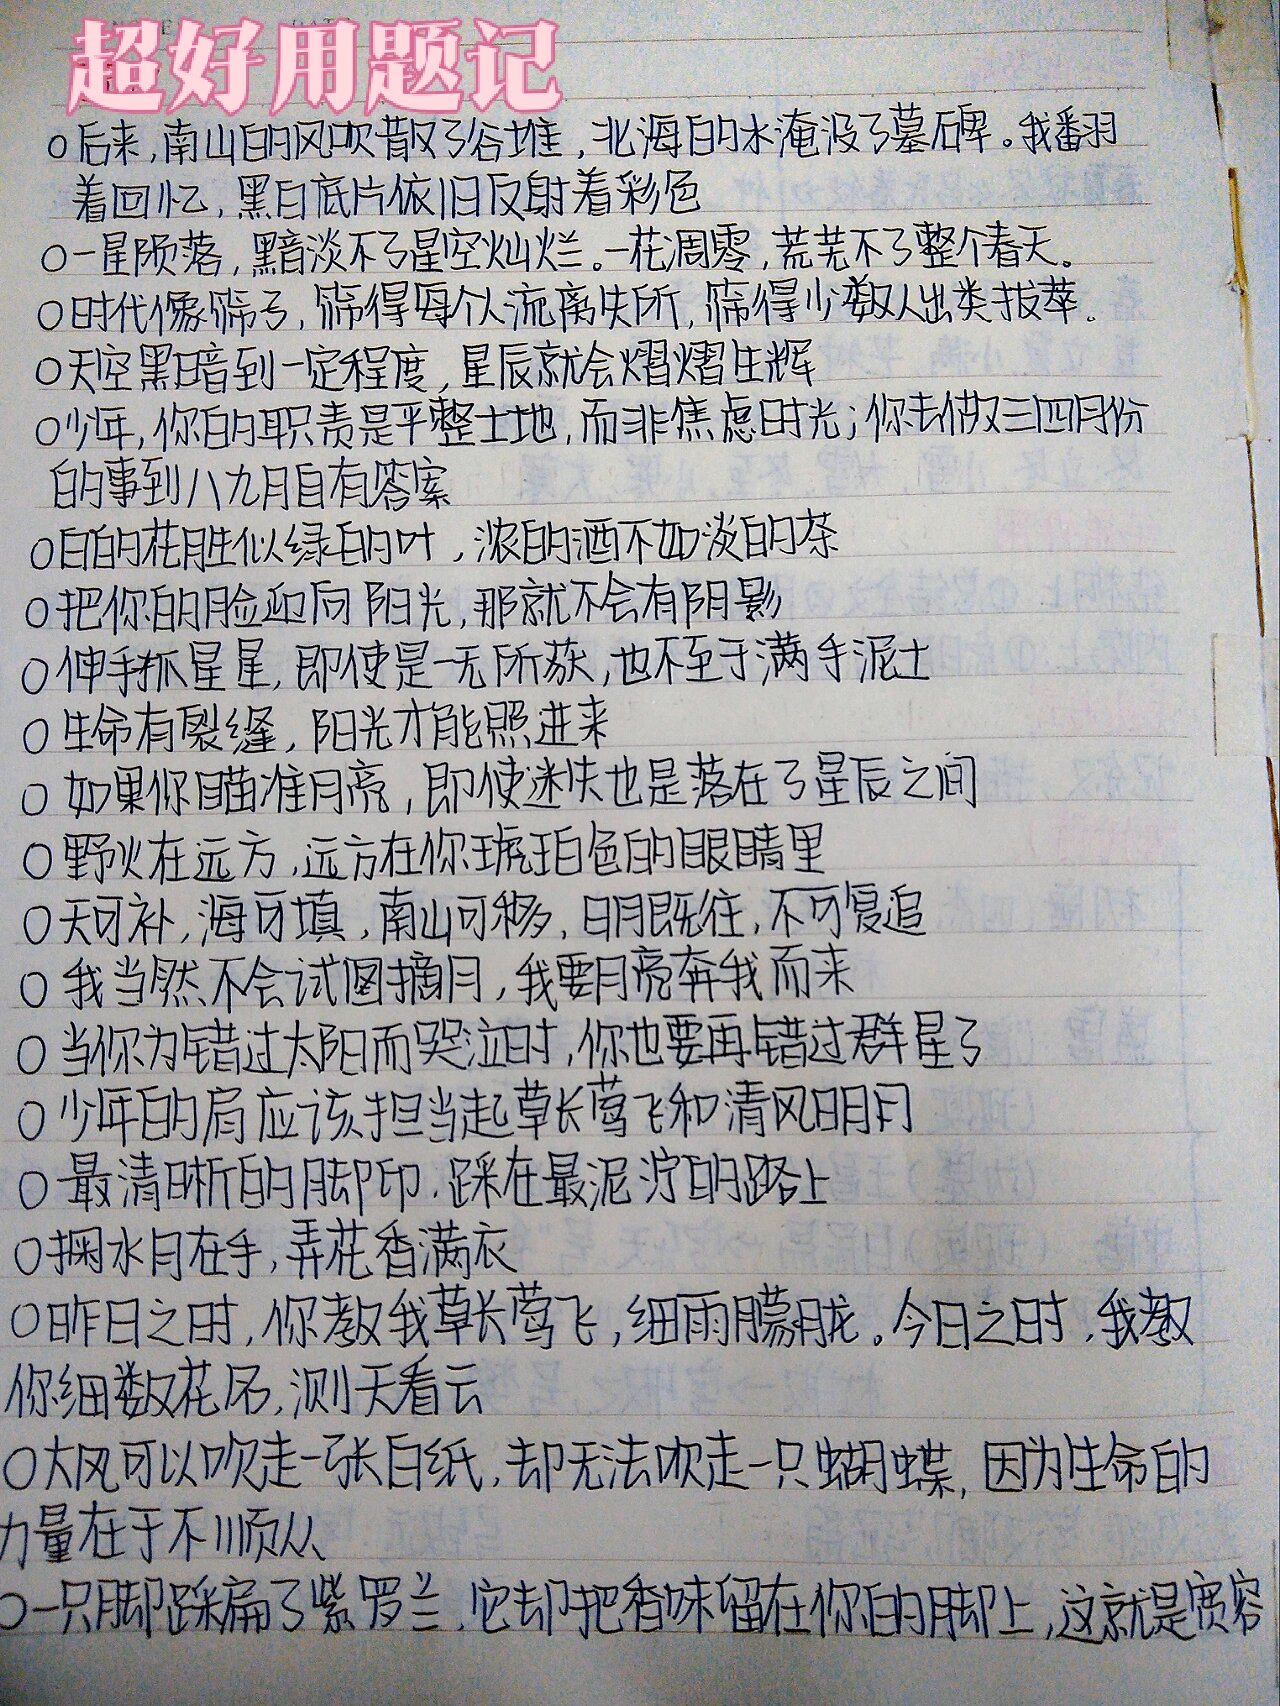 超好用题记
○后来,南山的风吹散了谷堆,北海的水淹没了墓碑。我翻
着回忆,黑白底片依旧反射着彩色
○一星陨落,黯淡不了星空灿烂。一花凋零,荒芜不了整个春天。
○时代像筛子,筛得每个人流离失所,筛得少数人出类拔萃。
○天空黑暗到一定程度,星辰就会熠熠生辉
○少年,你的职责是平整土地,而非焦虑时光;你去做三四月份
的事到八九月自有答案
○白的花胜似绿的叶,浓的酒不如淡的茶
○把你的脸迎向阳光,那就不会有阴影
○伸手抓星星,即使是一无所获,也不至于满手泥土
○生命有裂缝,阳光才能照进来
○如果你瞄准月亮,即使迷失也是落在了星辰之间
○野火在远方,远方在你琥珀色的眼睛里
○天可补,海可填,南山可移,日月既往,不可复追
○我当然不会试图摘月,我要月亮奔我而来
○当你为错过太阳而哭泣时,你也要再错过群星了
○少年的肩应该担当起草长莺飞和清风明月
○最清晰的脚印,踩在最泥泞的路上
○掬水月在手,弄花香满衣
○昨日之时,你教我草长莺飞,细雨朦胧。今日之时,我教
你细数花名,测天看云
○大风可以吹走一张白纸,却无法吹走一只蝴蝶,因为生命的
力量在于不顺从
○一只脚踩扁了紫罗兰,它却把香味留在你的脚上,这就是宽容